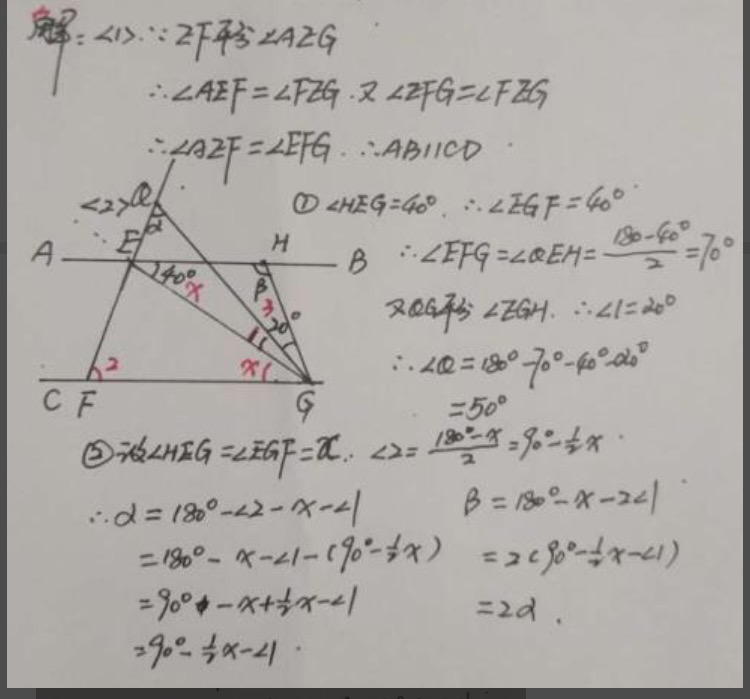 解：<1>∵ EF平分∠AEG
∴∠AEF=∠FEG.又∠EFG=∠FEG
∴∠AEF=∠EFG.∴AB∥CD
<2>
Q
α
E
A
H
B
40°
x
β
3
20°
1
2
x
C
F
G
①∠HEG=40°.∴∠EGF=40°
∴∠EFG=∠QEH=(180-40°)/2=70°
又QG平分∠EGH.∴∠1=20°
∴∠Q=180°-70°-40°-20°
=50°
②设∠HEG=∠EGF=x.∠2=(180°-x)/2=90°-1/2x.
∴α=180°-∠2-x-∠1
=180°-x-∠1-(90°-1/2x)
=90°-x+1/2x-∠1
=90°-1/2x-∠1.
β=180°-x-2∠1
=2(90°-1/2x-∠1)
=2α.